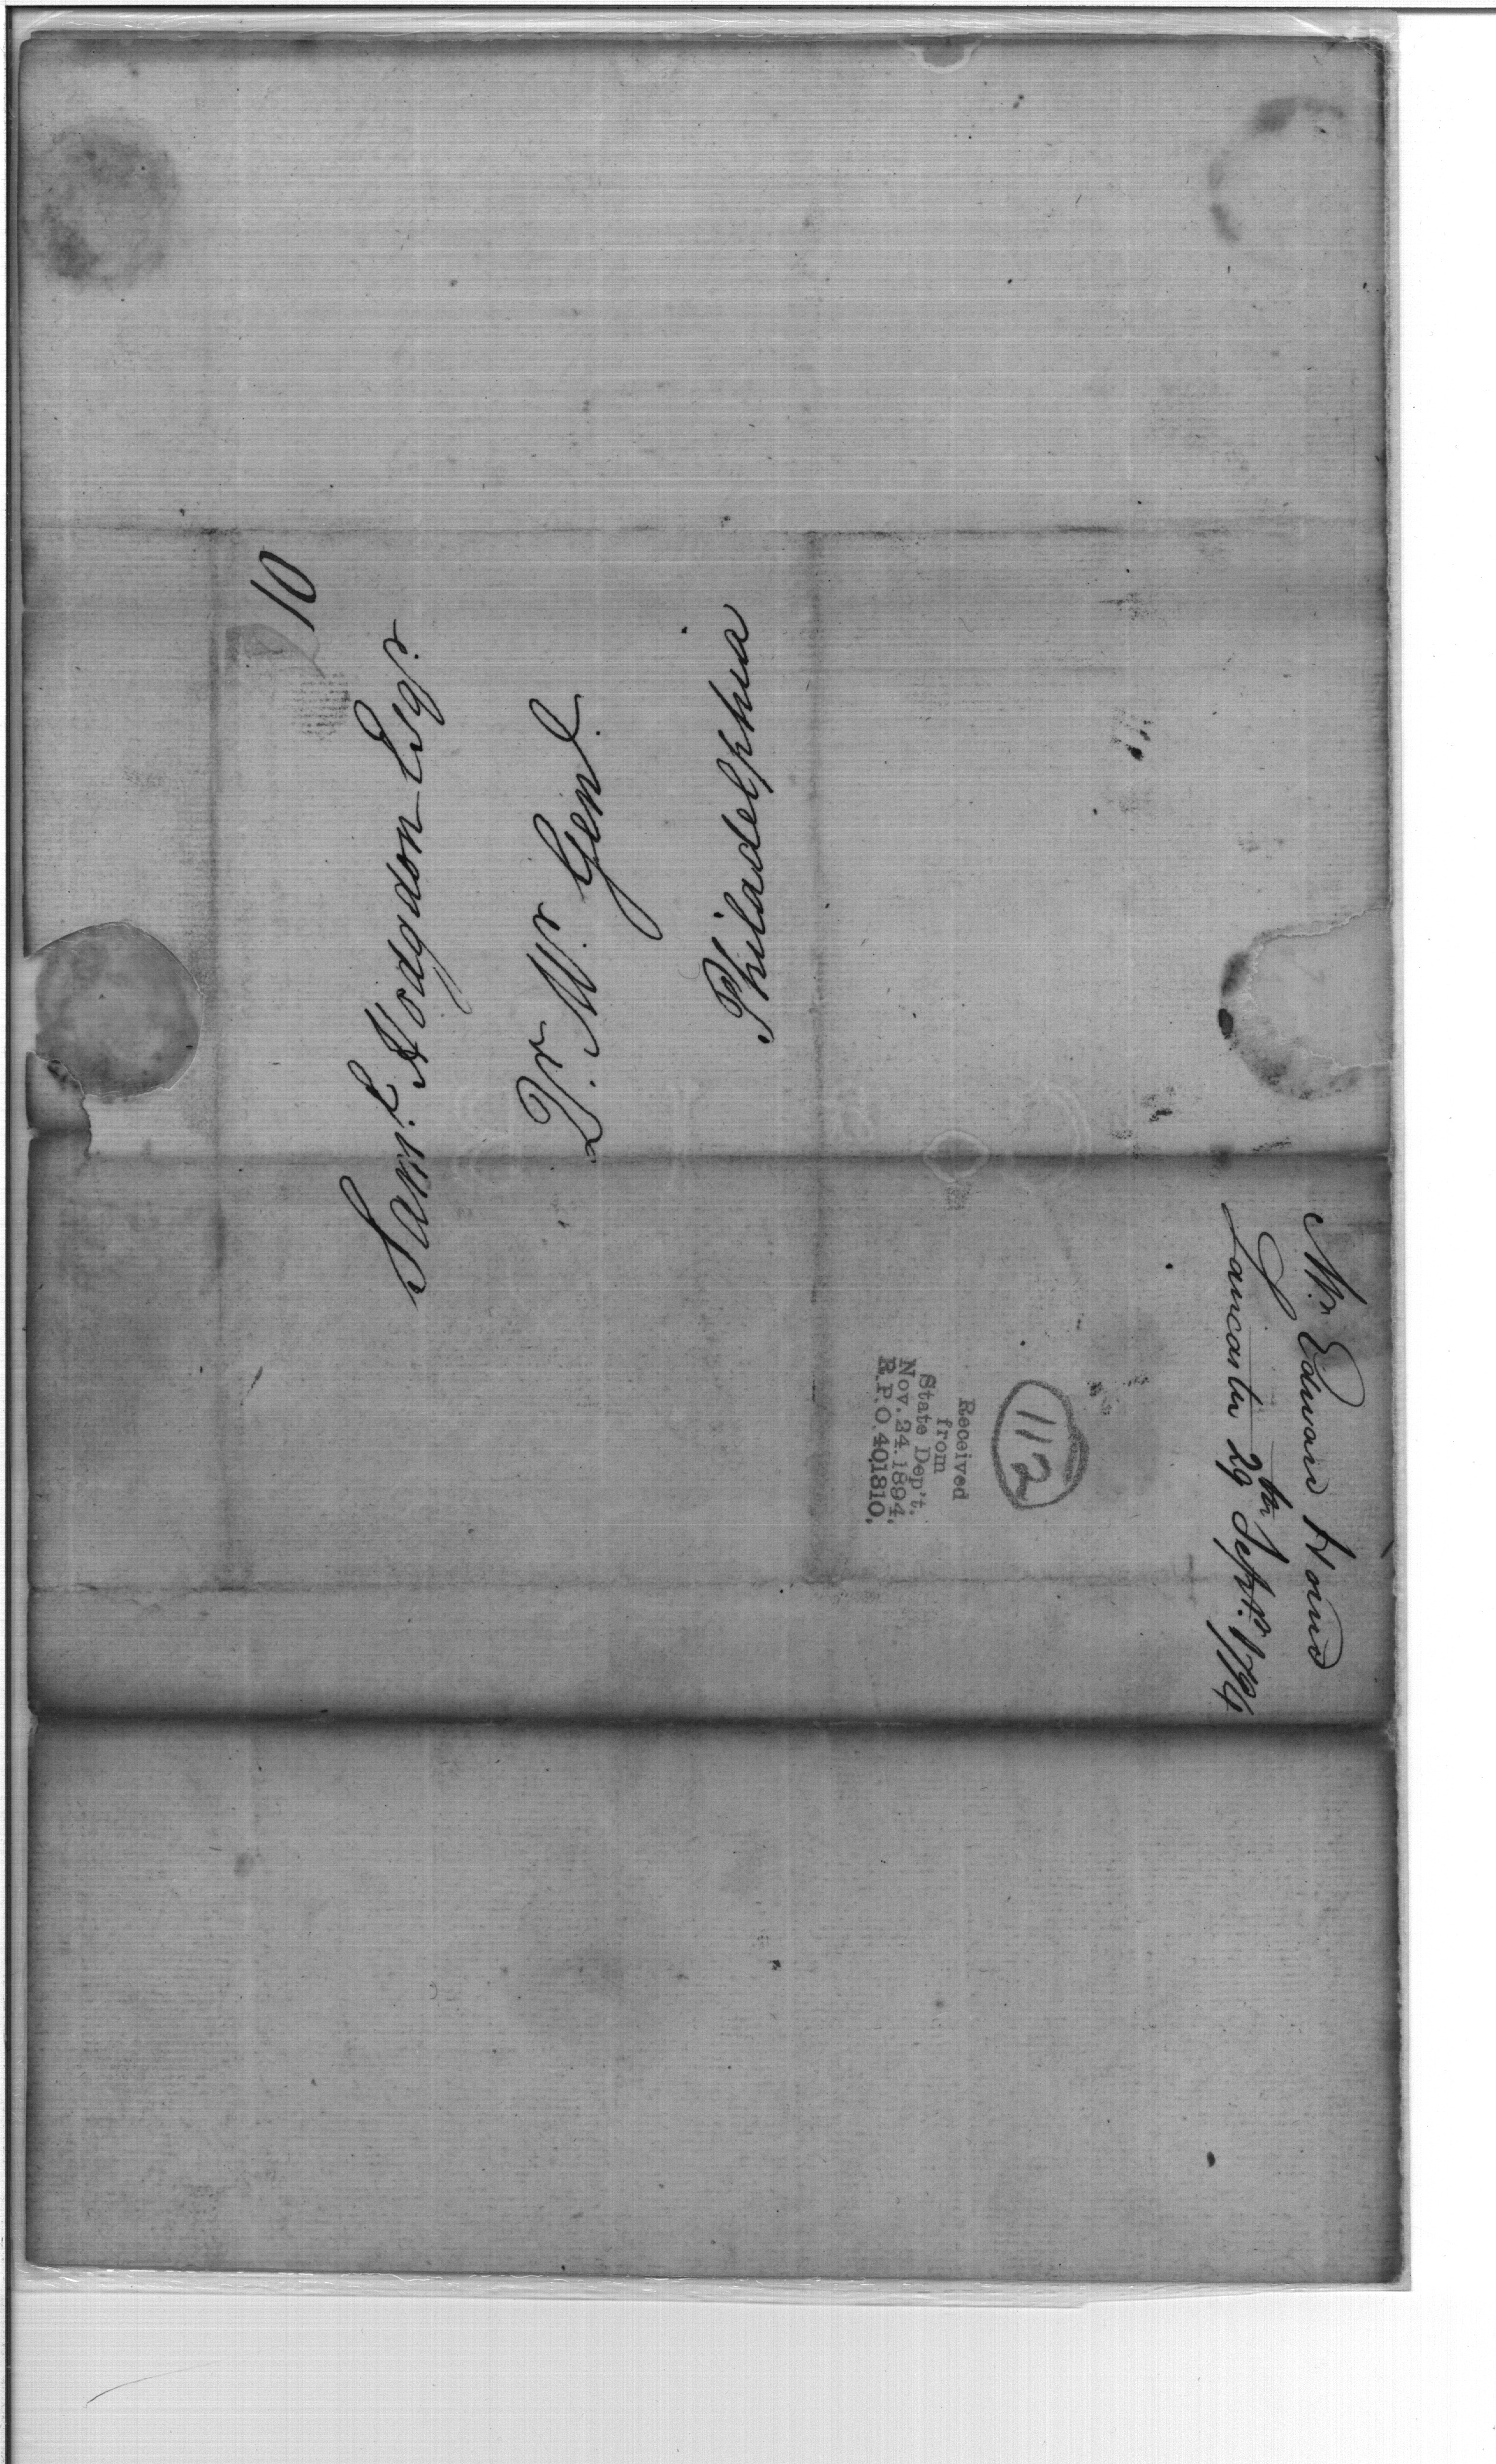 10
Saml. Hodgdon Esqr.
Qr. Mr. Genl.
Philadelphia
Mr. Edward Hand
Lancaster 29th Septr. 1794
112
Received
from
State Dep't.
Nov. 24. 1894.
R.P.O. 401310.